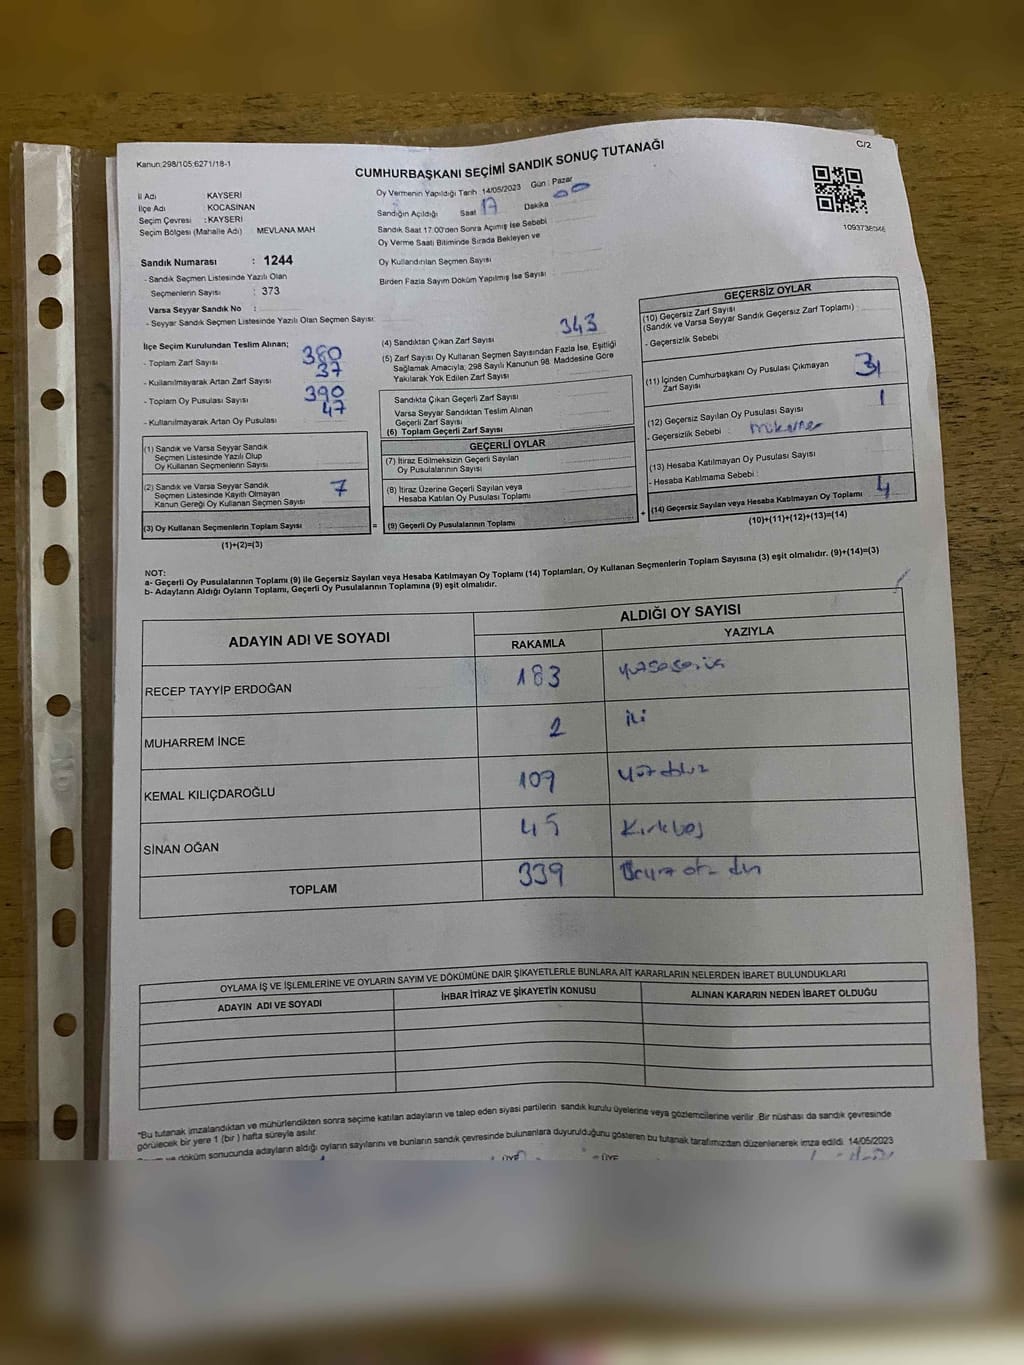 Kanun:298/105:6271/18-1
C/2
CUMHURBAŞKANI SEÇİMİ SANDIK SONUÇ TUTANAĞI
İl Adı : KAYSERİ
İlçe Adı : KOCASİNAN
Seçim Çevresi : KAYSERİ
Seçim Bölgesi (Mahalle Adı) MEVLANA MAH
Sandık Numarası : 1244
- Sandık Seçmen Listesinde Yazılı Olan
Seçmenlerin Sayısı : 373
Varsa Seyyar Sandık No :
- Seyyar Sandık Seçmen Listesinde Yazılı Olan Seçmen Sayısı:
Oy Vermenin Yapıldığı Tarih : 14/05/2023 Gün : Pazar
Sandığın Açıldığı Saat 17 Dakika 00
Sandık Saat 17:00'den Sonra Açımış İse Sebebi
Oy Verme Saati Bitiminde Sırada Bekleyen ve
Oy Kullandırılan Seçmen Sayısı
Birden Fazla Sayım Döküm Yapılmış İse Sayısı
İlçe Seçim Kurulundan Teslim Alınan;
- Toplam Zarf Sayısı 380
- Kullanılmayarak Artan Zarf Sayısı 37
- Toplam Oy Pusulası Sayısı 390
- Kullanılmayarak Artan Oy Pusulası 47
(1) Sandık ve Varsa Seyyar Sandık
Seçmen Listesinde Yazılı Olup
Oy Kullanan Seçmenlerin Sayısı
(2) Sandık ve Varsa Seyyar Sandık
Seçmen Listesinde Kayıtlı Olmayan
Kanun Gereği Oy Kullanan Seçmen Sayısı 7
(3) Oy Kullanan Seçmenlerin Toplam Sayısı =
(1)+(2)=(3)
(4) Sandıktan Çıkan Zarf Sayısı 343
(5) Zarf Sayısı Oy Kullanan Seçmen Sayısından Fazla İse, Eşitliği
Sağlamak Amacıyla; 298 Sayılı Kanunun 98. Maddesine Göre
Yakılarak Yok Edilen Zarf Sayısı
Sandıkta Çıkan Geçerli Zarf Sayısı
Varsa Seyyar Sandıktan Teslim Alınan
Geçerli Zarf Sayısı
(6) Toplam Geçerli Zarf Sayısı
GEÇERLİ OYLAR
(7) İtiraz Edilmeksizin Geçerli Sayılan
Oy Pusulalarının Sayısı
(8) İtiraz Üzerine Geçerli Sayılan veya
Hesaba Katılan Oy Pusulası Toplamı
(9) Geçerli Oy Pusulalarının Toplamı +
GEÇERSİZ OYLAR
(10) Geçersiz Zarf Sayısı
(Sandık ve Varsa Seyyar Sandık Geçersiz Zarf Toplamı)
- Geçersizlik Sebebi
(11) İçinden Cumhurbaşkanı Oy Pusulası Çıkmayan
Zarf Sayısı 3
(12) Geçersiz Sayılan Oy Pusulası Sayısı 1
- Geçersizlik Sebebi :
(13) Hesaba Katılmayan Oy Pusulası Sayısı
- Hesaba Katılmama Sebebi :
(14) Geçersiz Sayılan veya Hesaba Katılmayan Oy Toplamı 4
(10)+(11)+(12)+(13)=(14)
NOT:
a- Geçerli Oy Pusulalarının Toplamı (9) ile Geçersiz Sayılan veya Hesaba Katılmayan Oy Toplamı (14) Toplamları, Oy Kullanan Seçmenlerin Toplam Sayısına (3) eşit olmalıdır. (9)+(14)=(3)
b- Adayların Aldığı Oyların Toplamı, Geçerli Oy Pusulalarının Toplamına (9) eşit olmalıdır.
ADAYIN ADI VE SOYADI
ALDIĞI OY SAYISI
RAKAMLA YAZIYLA
RECEP TAYYİP ERDOĞAN 183
MUHARREM İNCE 2 iki
KEMAL KILIÇDAROĞLU 109
SİNAN OĞAN 45 Kırkbeş
TOPLAM 339
OYLAMA İŞ VE İŞLEMLERİNE VE OYLARIN SAYIM VE DÖKÜMÜNE DAİR ŞİKAYETLERLE BUNLARA AİT KARARLARIN NELERDEN İBARET BULUNDUKLARI
ADAYIN ADI VE SOYADI İHBAR İTİRAZ VE ŞİKAYETİN KONUSU ALINAN KARARIN NEDEN İBARET OLDUĞU
"Bu tutanak imzalandıktan ve mühürlendikten sonra seçime katılan adayların ve talep eden siyasi partilerin sandık kurulu üyelerine veya gözlemcilerine verilir. Bir nüshası da sandık çevresinde
görülecek bir yere 1 (bir) hafta süreyle asılır.
ve döküm sonucunda adayların aldığı oyların sayılarını ve bunların sandık çevresinde bulunanlara duyurulduğunu gösteren bu tutanak tarafımızdan düzenlenerek imza edildi. 14/05/2023
ÜYE ÜYE